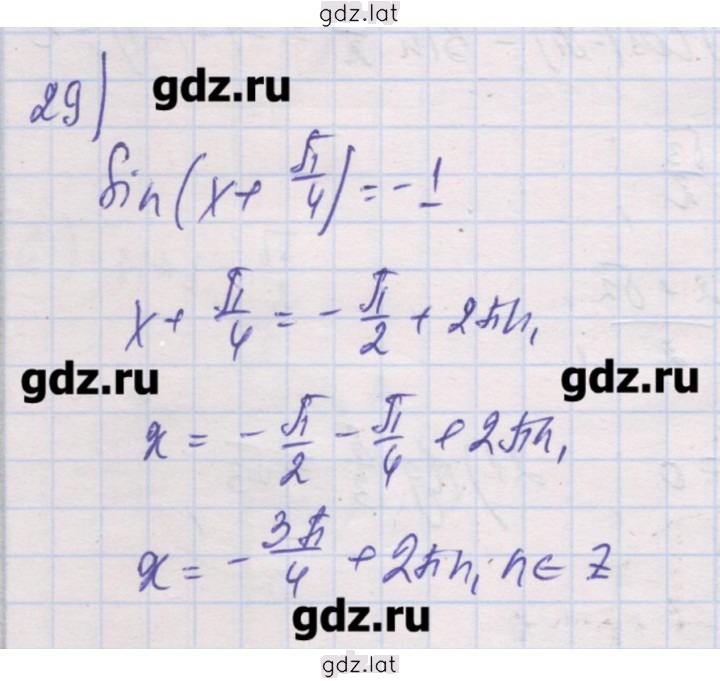 gdz.lat
29)
gdz.ru
sin(x + π/4) = -1
x + π/4 = -π/2 + 2πn,
gdz.ru gdz.ru
x = -π/2 - π/4 + 2πn,
x = -3π/4 + 2πn, n ∈ Z
gdz.ru
gdz.lat